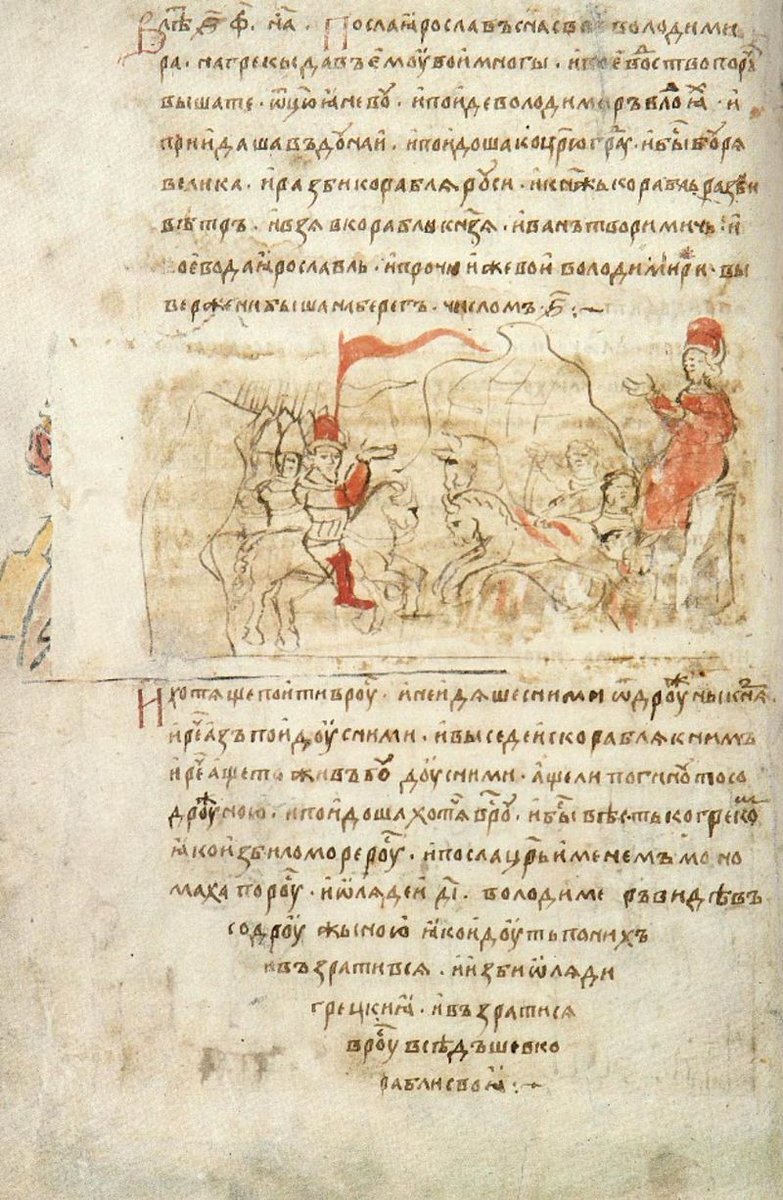 В лѣ҃ ҂ѕ҃ ф҃ н҃а · Посла ꙗрославъ сн҃а свое володими
ра · на грекы давъ емоу вои многы · и воевоство пору
вышате · ѿцю ꙗневоу · и поиде володимиръ в лоⷣꙗ · и
приидаша въ доунаи · и поидоша ко цр҃ю граⷣу · и бы҃ боуря
велика · и разби корабля роуси · и кн҃жь корабль разби
вѣтръ · и взя в корабль кн҃зя · иванъ творимичь · и
воевода ꙗрославль · и прочи иже вои володимири · вы
вержени быша на берегъ · числомъ ҂ѕ҃ :~
И хотяще поити в роу҃ · и не идяше с ними ѿ дроуⷤины кн҃жа
и реⷱ҃ азъ поидоу с ними · и выседе ис корабля к нимъ
и реⷱ҃ аще живъ боуⷣ с ними · аще ли погиноу то со
дроуⷤною · и поидоша хотя в роу҃ · и бы҃ вѣсть ко грекоⷨ
ꙗко избило море роу҃ · и посла цр҃ь именемъ моно
маха по роу҃ · и ѡлядеи д҃і · володиме ръ видѣвъ
со дроу жыною ꙗко идоуть по нихъ
и възратився · и изби ѡляди
грецкиꙗ · и възратися
в роу҃ вседъше в ко
рабли своꙗ :~